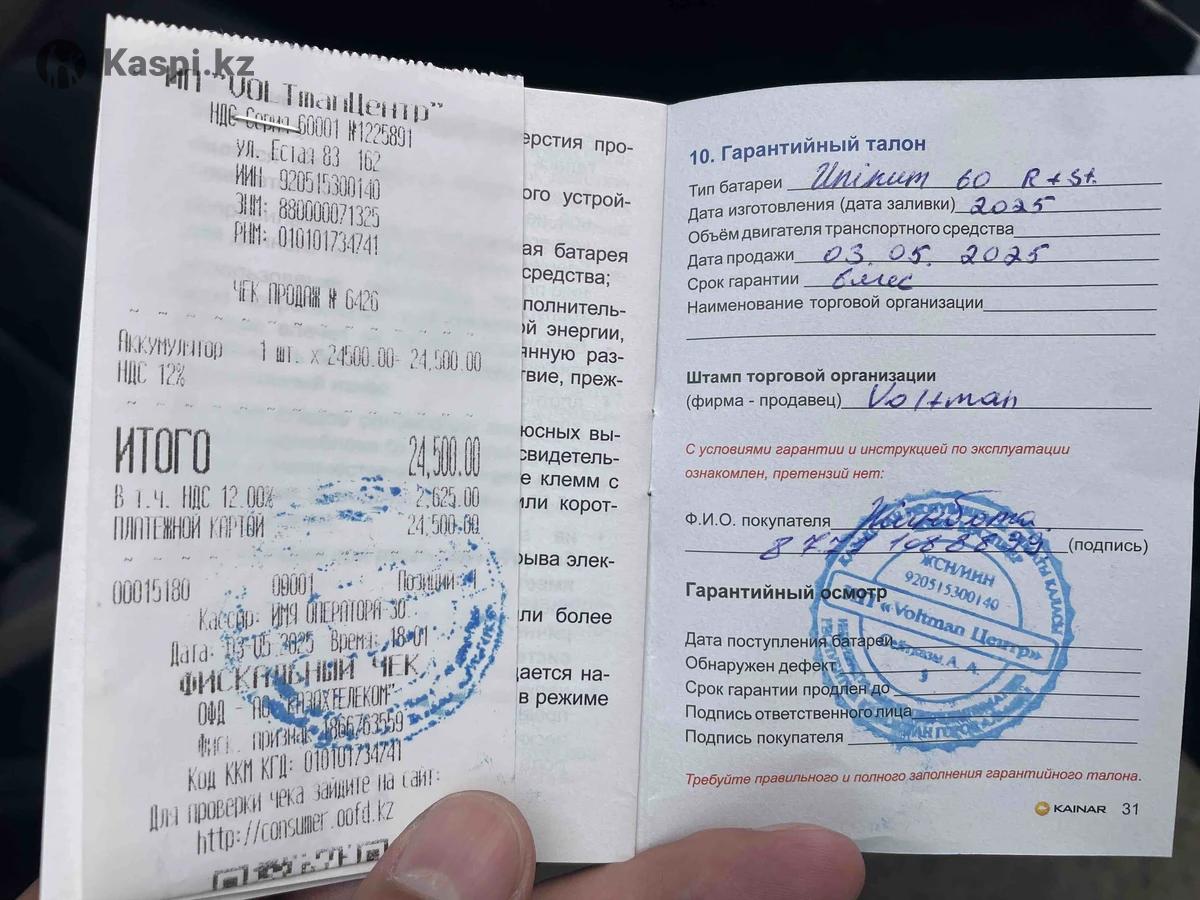 Kaspi.kz
ИП "VOLTmanЦентр"
НДС Серия 60001 №1225891
ул. Естая 83 162
ИИН 920515300140
ЗНМ: 880000071325
РНМ: 010101734741
ЧЕК ПРОДАЖ № 6426
Аккумулятор 1 шт. х 24500.00- 24,500.00
НДС 12%
ИТОГО 24,500.00
В т.ч. НДС 12.00% 2,625.00
ПЛАТЕЖНОЙ КАРТОЙ 24,500.00
00015180 09001 Позиций: 1
Кассир: ИМЯ ОПЕРАТОРА 30
Дата: 03-05-2025 Время: 18-01
ФИСКАЛЬНЫЙ ЧЕК
ОФД - АО "КАЗАХТЕЛЕКОМ"
Фиск. признак 1866763559
Код ККМ КГД: 010101734741
Для проверки чека зайдите на сайт:
http://consumer.oofd.kz
ерстия про-
ого устрой-
ая батарея
средства;
полнитель-
ой энергии,
янную раз-
твие, преж-
юсных вы-
свидетель-
е клемм с
или корот-
рыва элек-
ли более
дается на-
в режиме
10. Гарантийный талон
Тип батареи Uninum 60 R+St.
Дата изготовления (дата заливки) 2025
Объём двигателя транспортного средства
Дата продажи 03.05.2025
Срок гарантии 6 мес
Наименование торговой организации
Штамп торговой организации
(фирма - продавец) Voltman
С условиями гарантии и инструкцией по эксплуатации
ознакомлен, претензий нет:
Ф.И.О. покупателя
(подпись)
ЖСН/ИИН
920515300140
ИП «Voltman Центр»
Гарантийный осмотр
Дата поступления батареи
Обнаружен дефект
Срок гарантии продлен до
Подпись ответственного лица
Подпись покупателя
Требуйте правильного и полного заполнения гарантийного талона.
KAINAR 31